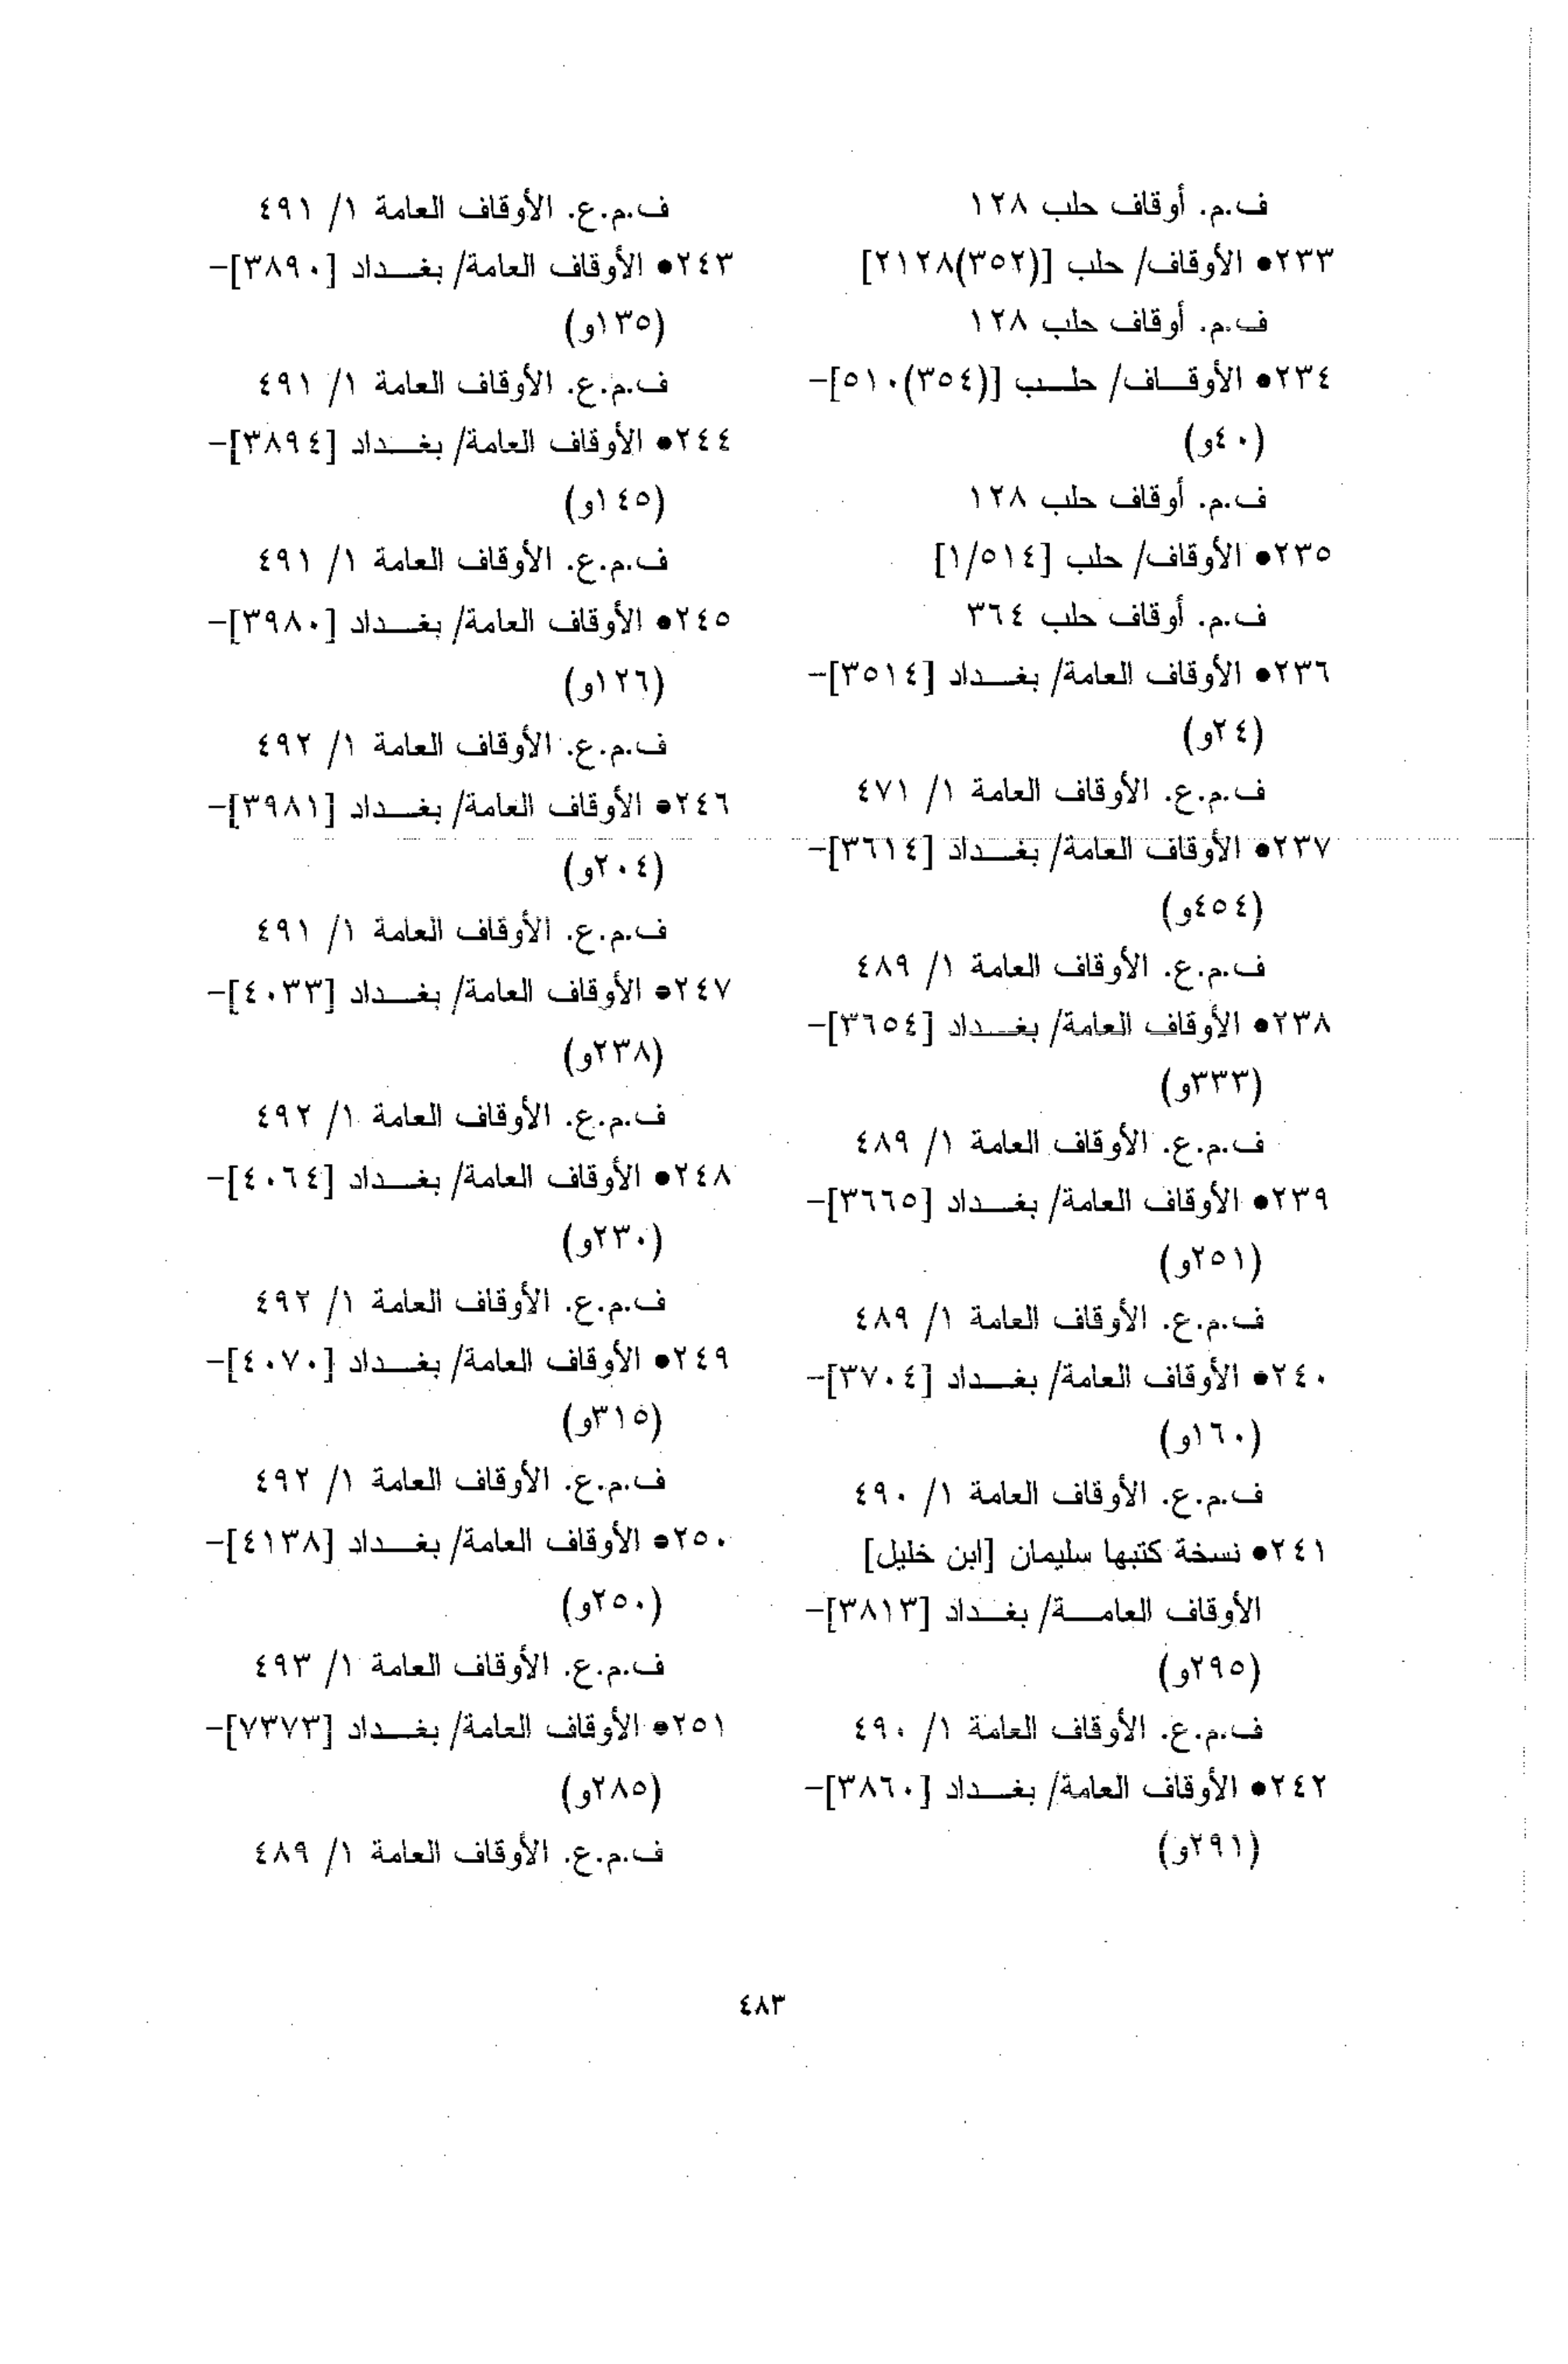 ف.م. أوقاف حلب ١٢٨
٢٣٣● الأوقاف/ حلب [(٣٥٢)٢١٢٨]
ف.م. أوقاف حلب ١٢٨
٢٣٤● الأوقاف/ حلب [(٣٥٤)٥١٠]-
(٤٠و)
ف.م. أوقاف حلب ١٢٨
٢٣٥● الأوقاف/ حلب [١/٥١٤]
ف.م. أوقاف حلب ٣٦٤
٢٣٦● الأوقاف العامة/ بغداد [٣٥١٤]-
(٢٤و)
ف.م.ع. الأوقاف العامة ١/ ٤٧١
٢٣٧● الأوقاف العامة/ بغداد [٣٦١٤]-
(٤٥٤و)
ف.م.ع. الأوقاف العامة ١/ ٤٨٩
٢٣٨● الأوقاف العامة/ بغداد [٣٦٥٤]-
(٣٣٣و)
ف.م.ع. الأوقاف العامة ١/ ٤٨٩
٢٣٩● الأوقاف العامة/ بغداد [٣٦٦٥]-
(٢٥١و)
ف.م.ع. الأوقاف العامة ١/ ٤٨٩
٢٤٠● الأوقاف العامة/ بغداد [٣٧٠٤]-
(١٦٠و)
ف.م.ع. الأوقاف العامة ١/ ٤٩٠
٢٤١● نسخة كتبها سليمان [ابن خليل]
الأوقاف العامة/ بغداد [٣٨١٣]-
(٢٩٥و)
ف.م.ع. الأوقاف العامة ١/ ٤٩٠
٢٤٢● الأوقاف العامة/ بغداد [٣٨٦٠]-
(٢٩١و)
ف.م.ع. الأوقاف العامة ١/ ٤٩١
٢٤٣● الأوقاف العامة/ بغداد [٣٨٩٠]-
(١٣٥و)
ف.م.ع. الأوقاف العامة ١/ ٤٩١
٢٤٤● الأوقاف العامة/ بغداد [٣٨٩٤]-
(١٤٥و)
ف.م.ع. الأوقاف العامة ١/ ٤٩١
٢٤٥● الأوقاف العامة/ بغداد [٣٩٨٠]-
(١٢٦و)
ف.م.ع. الأوقاف العامة ١/ ٤٩٢
٢٤٦● الأوقاف العامة/ بغداد [٣٩٨١]-
(٢٠٤و)
ف.م.ع. الأوقاف العامة ١/ ٤٩١
٢٤٧● الأوقاف العامة/ بغداد [٤٠٣٣]-
(٢٣٨و)
ف.م.ع. الأوقاف العامة ١/ ٤٩٢
٢٤٨● الأوقاف العامة/ بغداد [٤٠٦٤]-
(٢٣٠و)
ف.م.ع. الأوقاف العامة ١/ ٤٩٢
٢٤٩● الأوقاف العامة/ بغداد [٤٠٧٠]-
(٣١٥و)
ف.م.ع. الأوقاف العامة ١/ ٤٩٢
٢٥٠● الأوقاف العامة/ بغداد [٤١٣٨]-
(٢٥٠و)
ف.م.ع. الأوقاف العامة ١/ ٤٩٣
٢٥١● الأوقاف العامة/ بغداد [٧٣٧٣]-
(٢٨٥و)
ف.م.ع. الأوقاف العامة ١/ ٤٨٩
٤٨٣